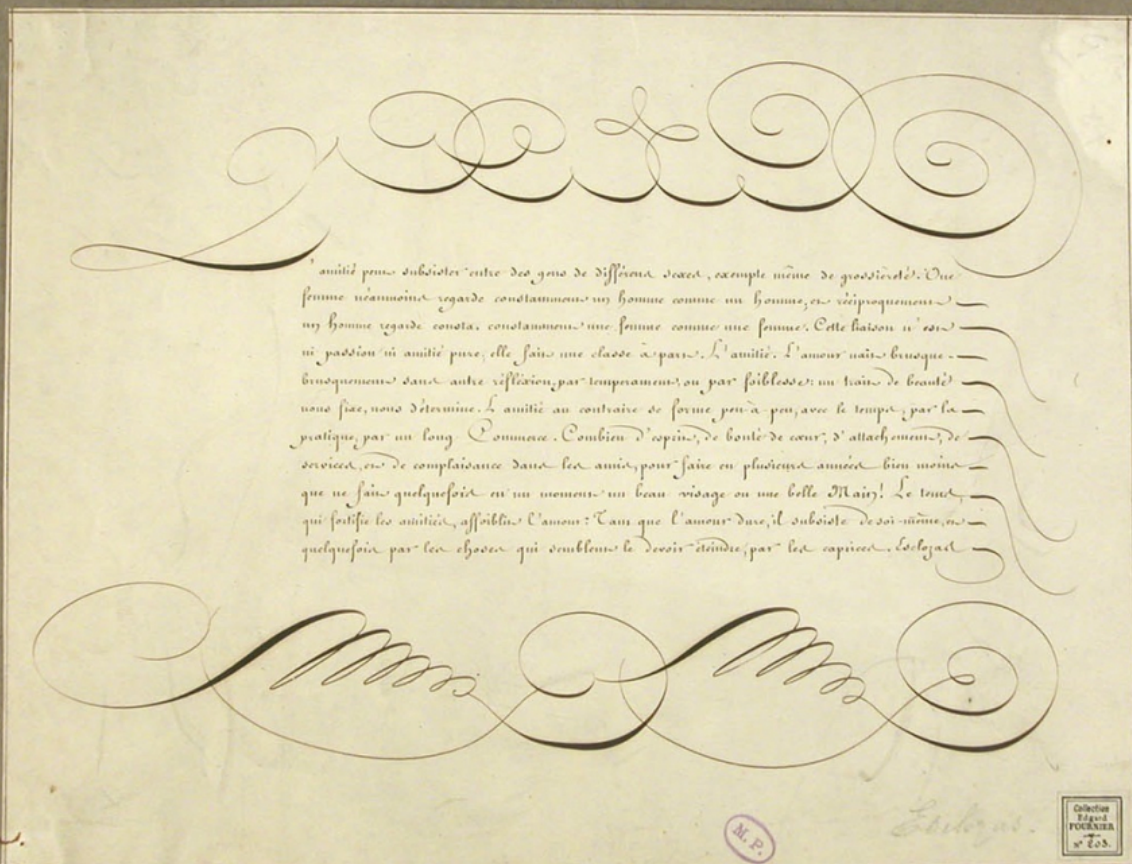 L'amitié peut subsister entre des gens de différens sexes, exempte même de grossièreté. Une
femme néanmoins regarde constamment un homme comme un homme, et réciproquement
un homme regarde consta. constamment une femme comme une femme. Cette liaison n'est
ni passion ni amitié pure, elle fait une classe à part. L'amitié. L'amour nait brusque-
brusquement sans autre réfléxion, par temperament, ou par foiblesse: un trait de beauté
nous fixe, nous détermine. L'amitié au contraire se forme peu-à-peu, avec le temps, par la
pratique, par un long Commerce. Combien d'esprit, de bonté de cœur, d'attachement, de
services, et de complaisance dans les amis, pour faire en plusieurs années bien moins
que ne fait quelquefois en un moment un beau visage ou une belle Main! Le tems,
qui fortifie les amitiés, affoiblit l'amour: Tant que l'amour dure, il subsiste de soi-même, et
quelquefois par les choses qui semblent le devoir éteindre, par les caprices. Esclozas
M. P.
Esclozas.
Collection
Edgard
FOURNIER
N° 203.